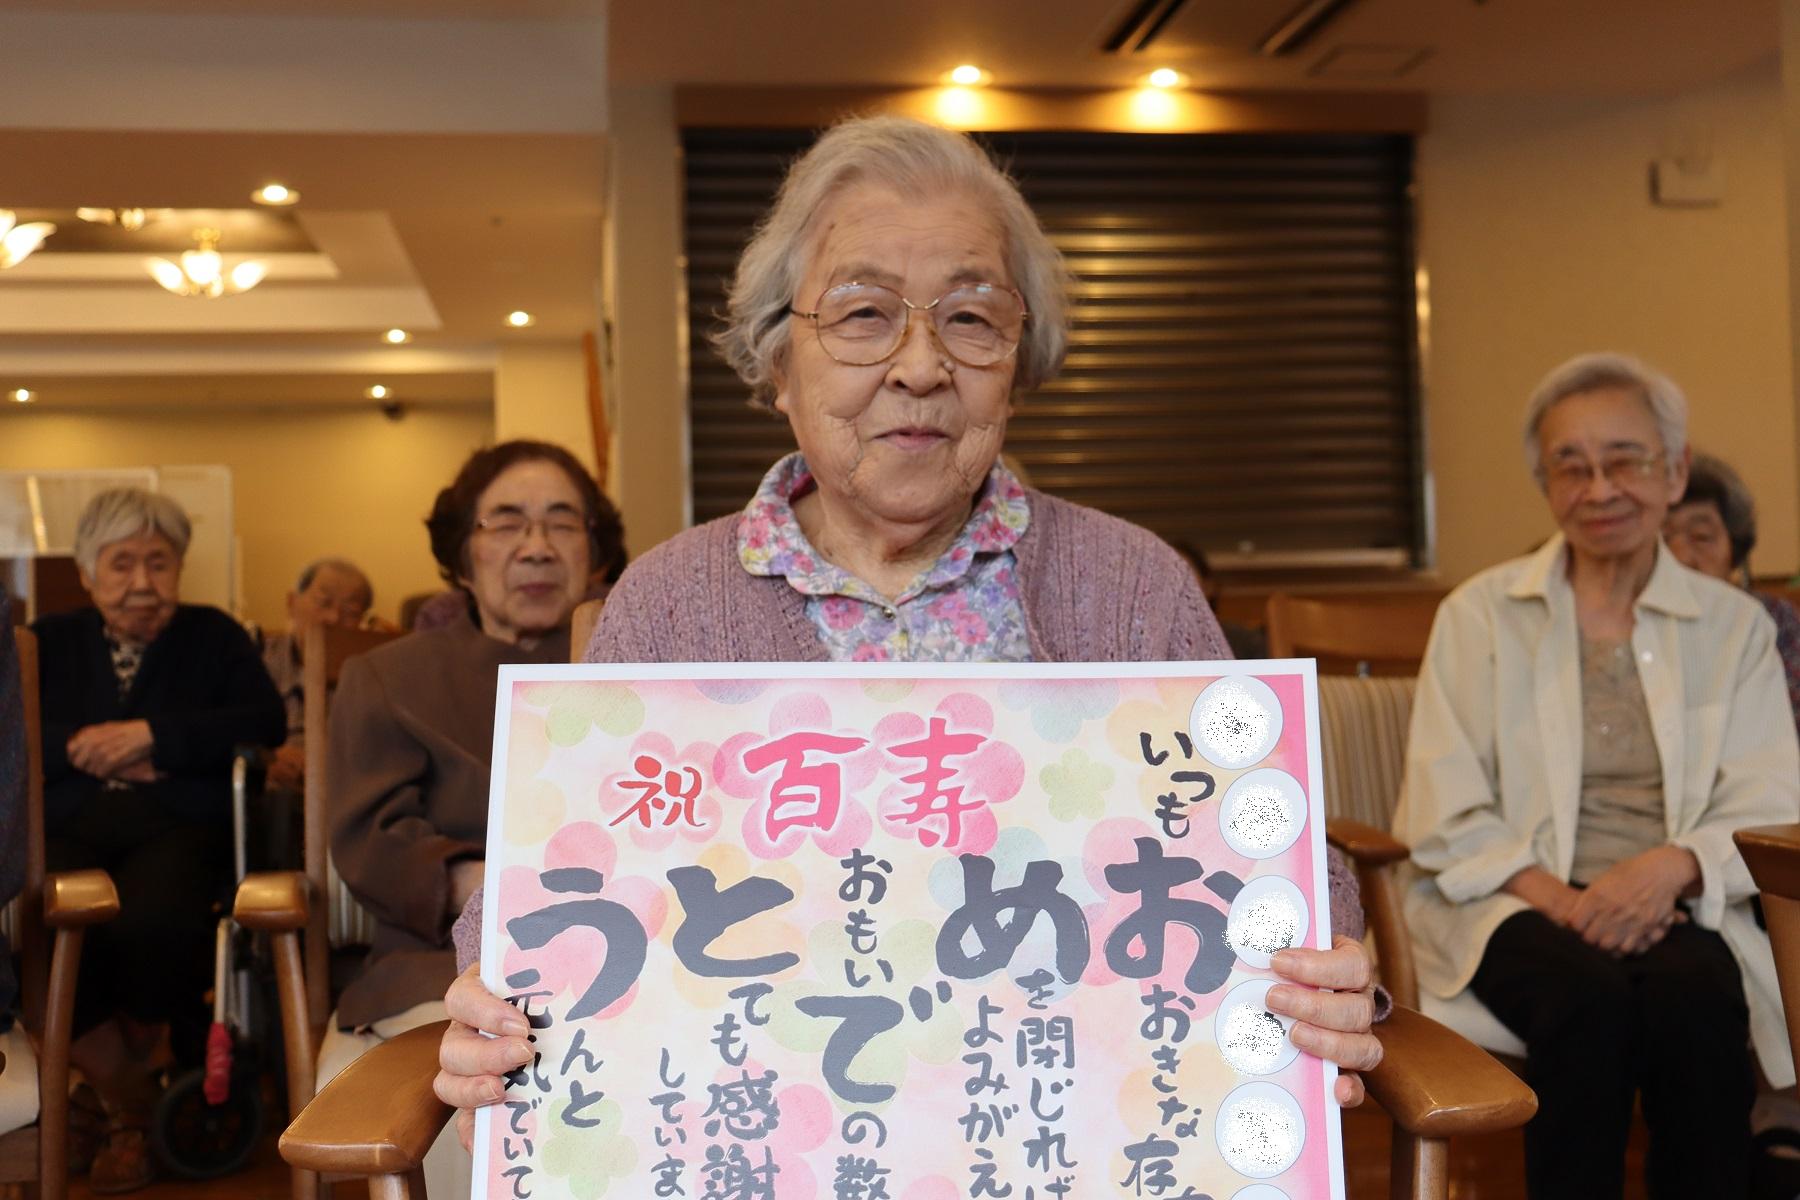 祝 百寿
いつも
おおきな存
めを閉じれば
よみがえ
おもいでの数
とても感謝
していま
うんと
元気でいて